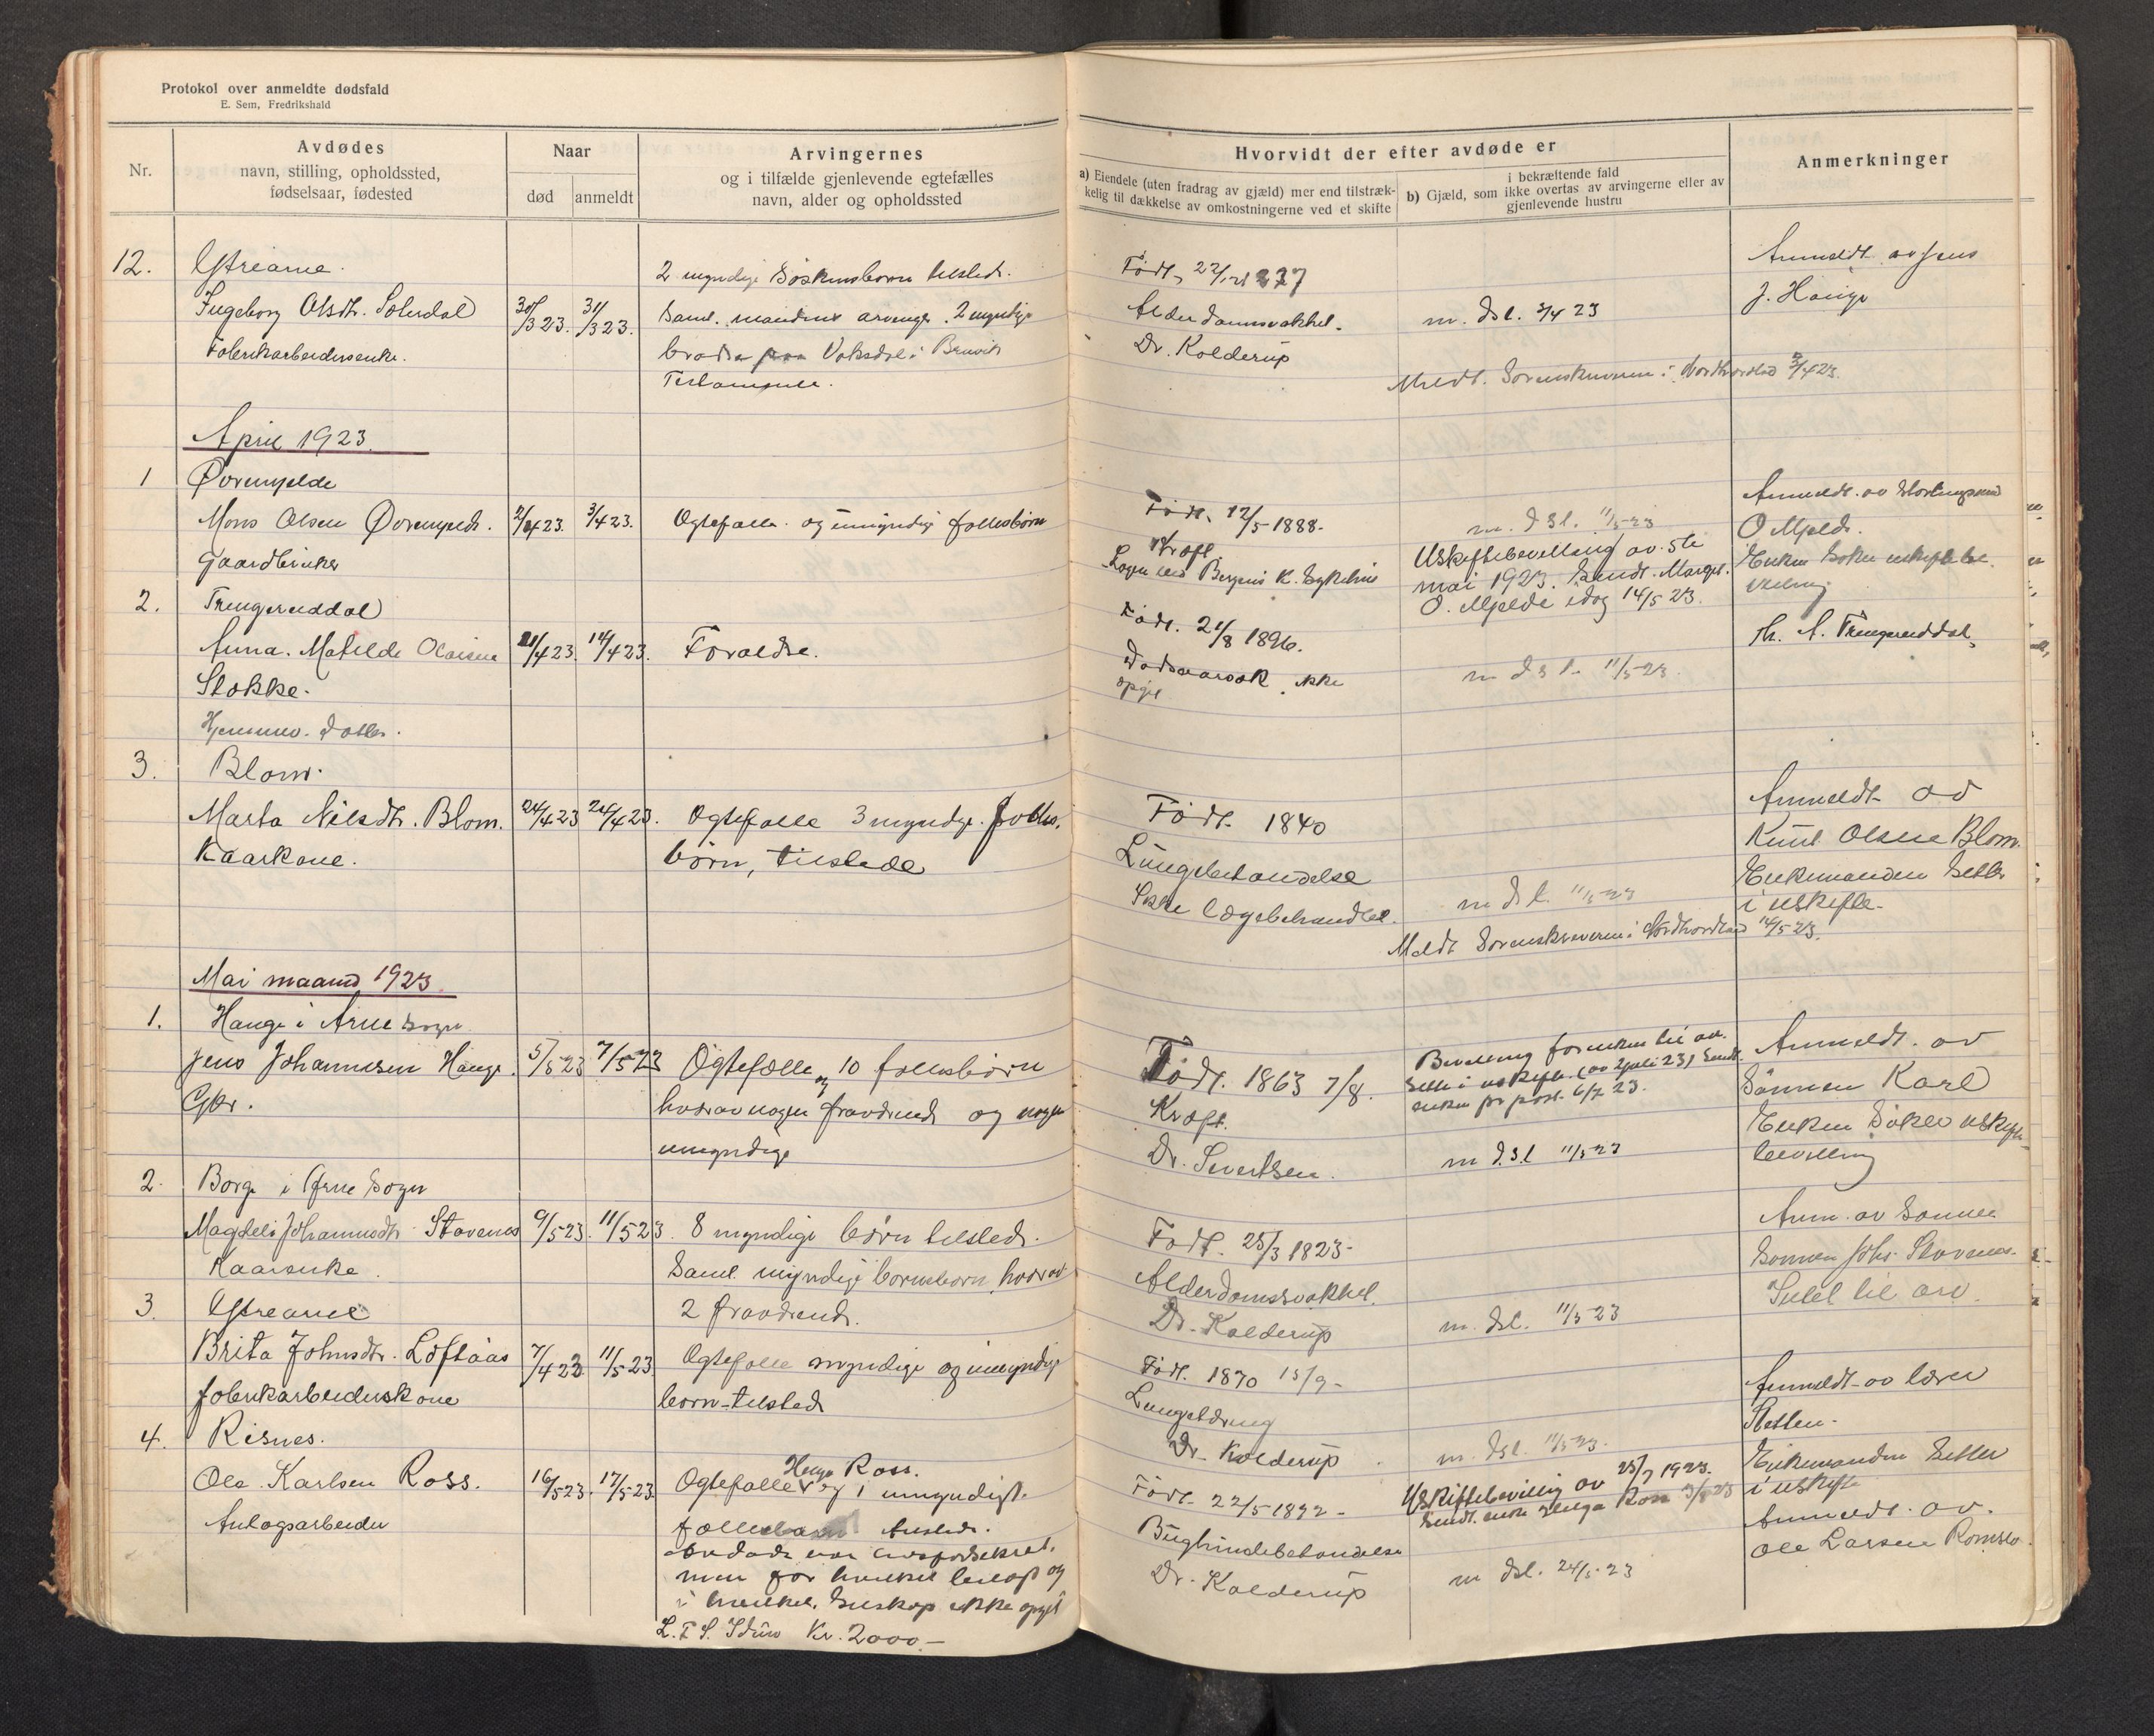 Protokol over anmeldte dødsfald
E. Sem, Fredrikshald
Nr.
Avdødes
navn, stilling, opholdssted,
fødselsaar, fødested
Naar
død
anmeldt
Arvingernes
og i tilfælde gjenlevende egtefælles
navn, alder og opholdssted
12.
Ytrearne.
2 myndige Søskenbørn tilstede.
Ingeborg Olsdtr.
30/3 23.
31/3 23.
Saml. mandens arvinger. 2 myndige
Fabrikarbeiderenke.
brødre paa Vaksdal i Bruvik
Testamente.
April 1923.
1
Øvremjelde
Mons Olsen Øvremjelde.
2/4 23.
3/4 23.
Ogtefælle og umyndige fællesbørn
Gaardbruker
2.
Trengereiddal
Anna Matilde
21/4 23.
14/4 23.
Forældre.
Stokke.
Hjemmev. datter.
3.
Blom.
Marta Nilsdtr. Blom.
24/4 23
24/4 23.
Ogtefælle 3 myndige fælles-
Kaarkone.
børn, tilstede
Mai maaned 1923.
1.
Hauge i Arne Sogn
Jens Johannesen Hauge.
5/5 23
7/5 23
Ogtefælle og 10 fællesbørn
Gbr.
hvorav nogen fraværende og nogen
umyndige
2.
Borge i Arne Sogn
Magdeli Johannesdtr. Stavenes
9/5 23.
11/5 23.
8 myndige børn tilstede.
Kaarenke.
Saml. myndige børnebørn, hvorav
3.
Ytrearne
2 fraværende.
Brita Johnsdtr. Loftaas
7/4 23
11/5 23
Ogtefælle myndige og umyndige
fabrikarbeiderskone
børn tilstede
4.
Risnes.
Helga Ross.
Ole Karlsen Ross.
16/5 23.
17/5 23.
Ogtefælle og 1 umyndigt
Anlægsarbeider
fællesbarn tilstede.
Avdøde var livsforsikret,
men for hvilket beløp og
i hvilket Selskap ikke opgit
L. F. S. Idun Kr. 2000.-
Hvorvidt der efter avdøde er
a) Eiendele (uten fradrag av gjæld) mer end tilstræk-
kelig til dækkelse av omkostningerne ved et skifte
i bekræftende fald
b) Gjæld, som ikke overtas av arvingerne eller av
gjenlevende hustru
Anmerkninger
Født
Anmeldt av Jens
J. Hauge
Alderdomssvakhet.
m. dsl. 3/4 23
Dr. Kolderup
Meldt Sorenskriveren i Nordhordland 3/4 23.
Født. 12/5 1888.
m. dsl. 11/5-23
Anmeldt av Stortingsmand
O Mjelde.
Kræft.
Lægen ved Bergens K. Sykehus
Uskiftebevilling av 5te
mai 1923. Sendt Marget.
O. Mjelde idag 14/5 23.
Enken søker uskiftebe-
vilning
Født. 21/8 1896.
Dødsaarsak ikke
opgit
m dsl. 11/5-23.
A. Trengereiddal.
Født 1840
Anmeldt av
Knut Olsen Blom.
Lungebetændelse
Ikke lægebehandlet.
m dsl. 11/5-23
Enkemanden Sitter
i uskifte.
Meldt Sorenskriveren i Nordhordland 14/5 23.
Født. 1863 7/8.
Kræft.
Dr. Sivertsen.
Bevilling for enken til at
Sitte i uskifte (av 2 juli 23) Sendt
enken pr post. 6/7 23.
m dsl 11/5-23
Anmeldt av
Sønnen Karl
Enken Søker uskifte
bevilling
Født. 25/3 1823-
Alderdomssvakhet.
Dr. Kolderup
m. dsl. 11/5 23
Anm. av Sønnen
Sønnen Johs. Stavenes.
Intet til arv.
Født. 1870 15/9-
Dr. Kolderup.
m. dsl. 11/5-23.
Anmeldt av lærer
Enkemanden Sitter
i uskifte
Født. 22/5 1892-
Uskiftebevilling av 25/7 1923.
Sendt enke Helga Ross
Bughindebetændelse
Dr. Kolderup
m dsl. 24/5-23
Anmeldt av.
Ole Larsen Romslo.